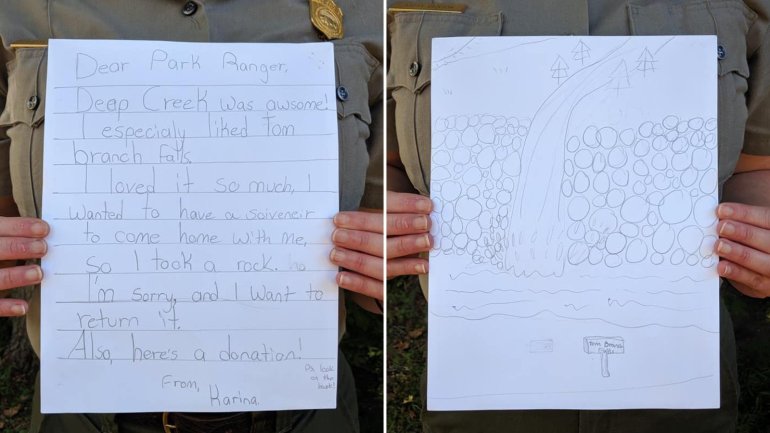 Dear Park Ranger,
Deep Creek was awsome!
I especialy liked Tom
branch falls.
I loved it so much, I
wanted to have a soiveneir
to come home with me,
so I took a rock.
I'm sorry, and I want to
return it.
Also, here's a donation!
From,
Karina.
Ps. look
on the
back!
Tom Branch
Falls